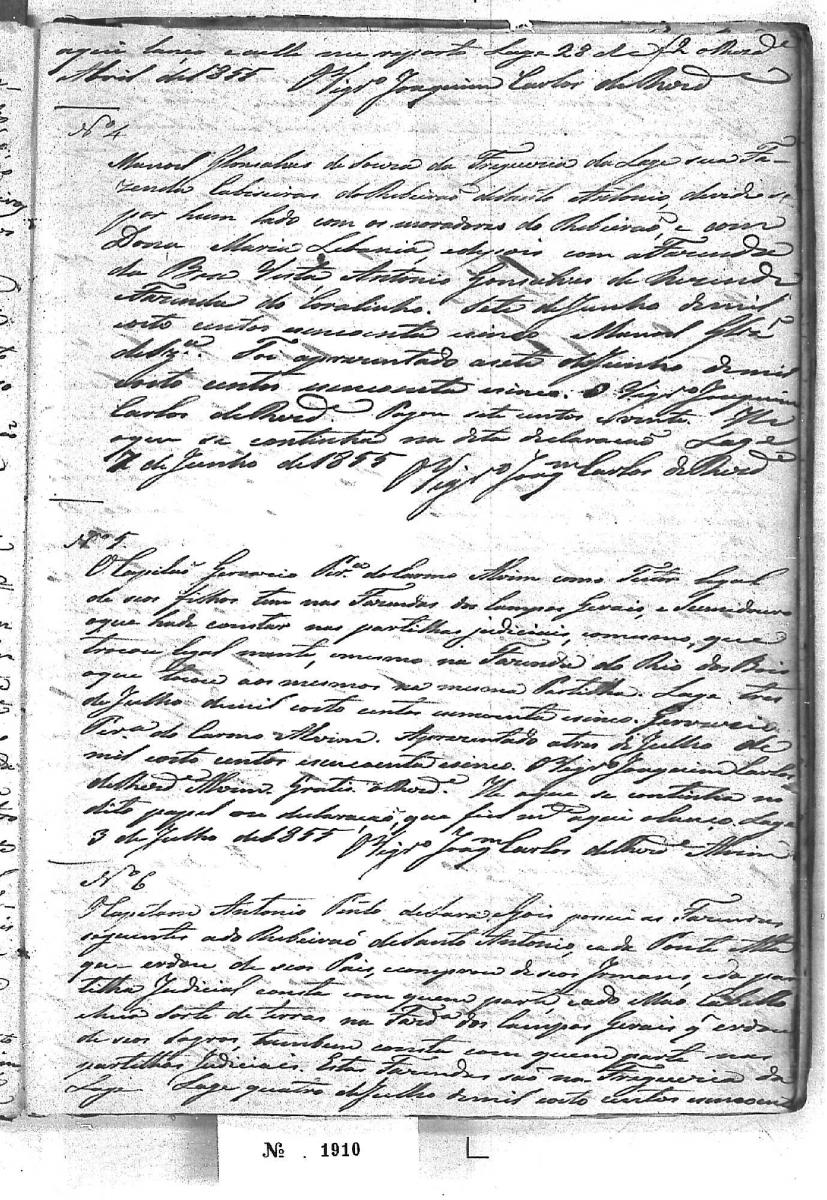 aqui lanço e aelle me reporto Lage 28 de
Abril de 1855 O Vigrº Joaquim Carlos de Rezde
Nº 4
Manoel Gonsalves de Souza da Freguezia da Lage sua Fa-
zenda Cabiceiras do Ribeirão deSanto Antonio, devide se
por hum lado com os moradores do Ribeirão, e com
Dona Maria Libania, edepois com aFazenda
da Boa Vista Antonio Gonsalves de Rezende
eFazenda do Coralinho. Sete deJunho demil
oito centos ecincoenta ecinco Manoel Glz
deSzª. Foi aprezentado asete deJunho demil
eoito centos ecincoenta ecinco. O Vigrº Joaquim
Carlos deRezdº. Pagou sete centos evinte. He
oque se continha na dita declaração Lage
7 de Junho de 1855 O Vigrº Joaqm Carlos de Rezdº
Nº 5.
O Capitão Gervazio Prª do Carmo Alvim como Tutor legal
de seos filhos tem nas Fazendas dos Campos Gerais, e Sumidouro
oque hade constar nas partilhas judiciais, comesmo, que
tocou legal mente, omesmo na Fazenda do Rio dos Bois
oque tocou aos mesmos na mesma Partilha. Lage tres
de Julho demil eoito centos ecincoenta ecinco. Gervazio
Perª do Carmo Alvim. Aprezentado atres deJulho de
mil eoito centos ecincoenta ecinco. O Vigrº Joaquim Carlos
deRezdº Alvim. Gratis oRezdº. He oque se continha no
dito papel ou declaração, que fiel mte aqui olanço. Lage
3 de Julho de 1855 O Vigrº Joaqm Carlos deRezdº Alvim
Nº 6
O Capitam Antonio Pinto deLara eGois possue as Fazendas
seguentes ado Ribeirão deSanto Antonio, eade Ponte Alta
que erdou de seos Pais, ecomprou deseos Jrmaos, eda par
tilha Judicial consta com quem parte, eado Mao Cabello
ehuma sorte de terras na Fazdª dos Campos Gerais q erdou
de seos Sogros, tambem consta com quem parte nas
partilhas Judiciais. Estas Fazendas são na Freguezia da
Lage Lage quatro deJulho demil eoito centos ecincoen
Nº 1910